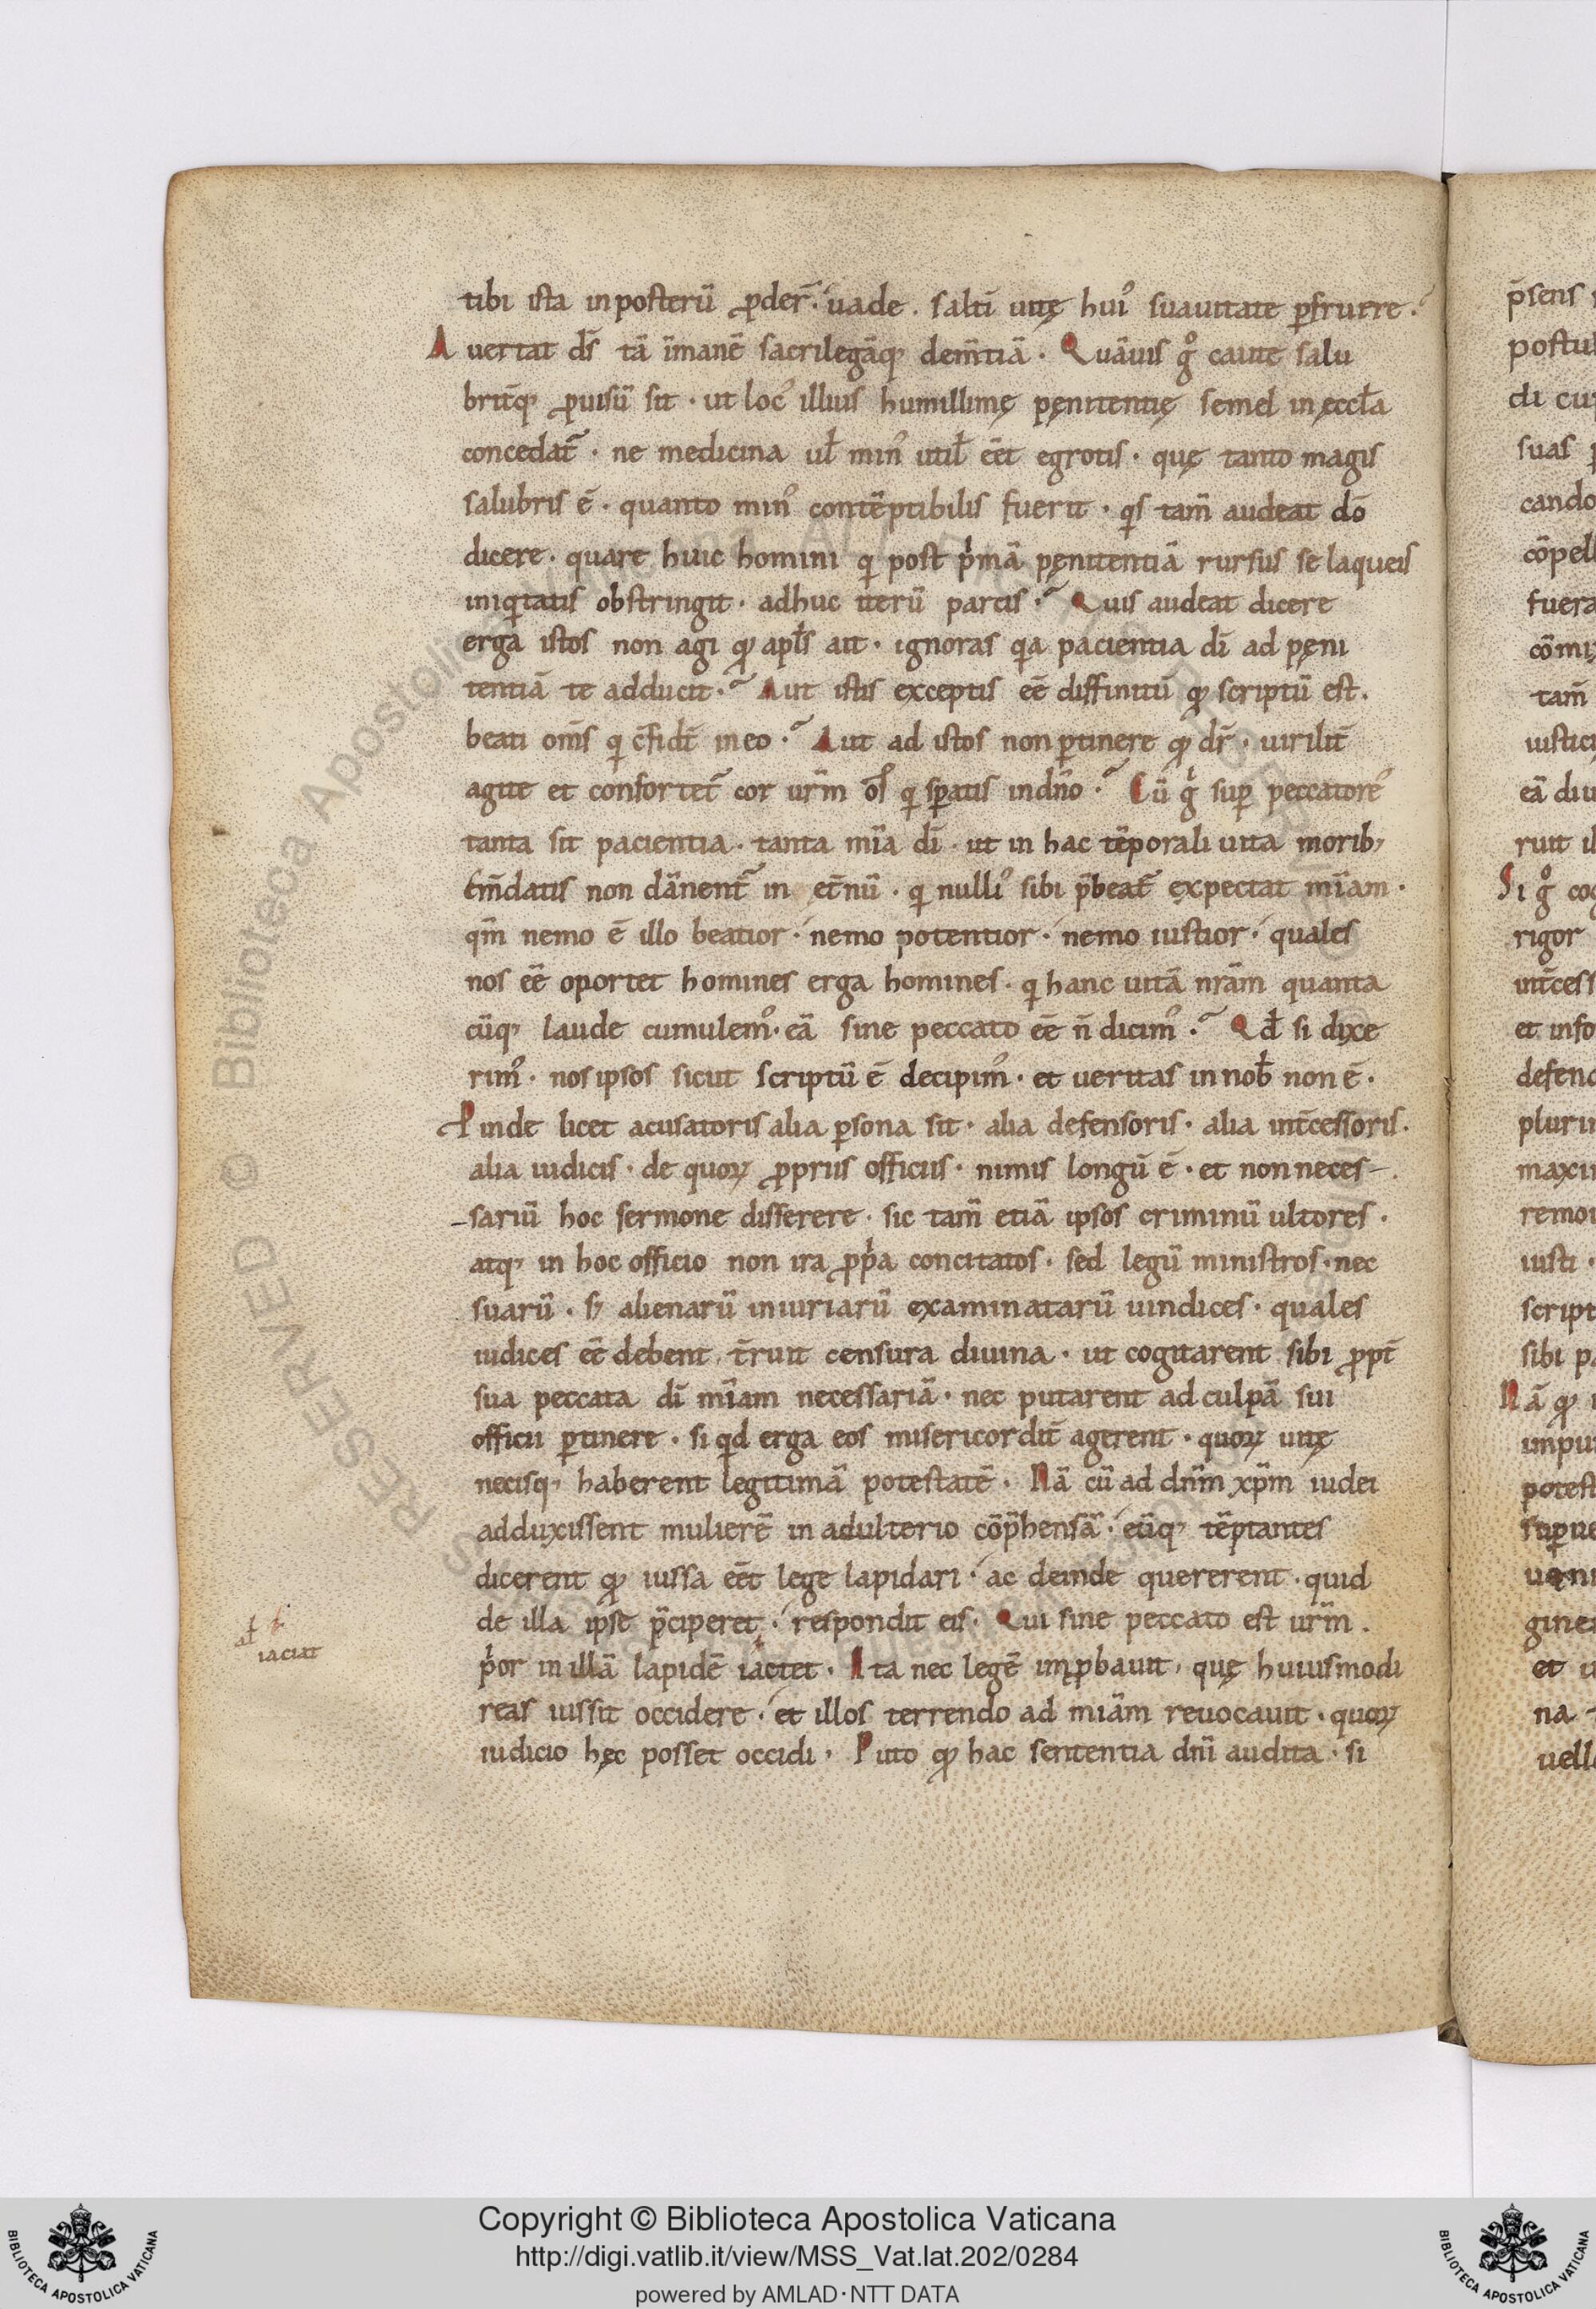 tibi ista inposterū ꝓder̄· uade· saltī uitę huiꝰ suauitate ꝑfruere·
Auertat ds̄ tā īmanē sacrilegāq; dem̄tiā· Quāuis gͦ caute salu
brit̄q; ꝓuisū sit· ut locꝰ illius humillimę pęnitentię semel in ęccl̄a
concedat̄· ne medicina ul̄ minꝰ util̄ eēt egrotis· quę tanto magis
salubris ē· quanto minꝰ contēptibilis fuerit· qͥs tam̄ audeat dō
dicere· quare huic homini qͥ post pͥmā pęnitentiā rursus se laqueis
iniqͥtatis obstringit· adhuc iterū parcis· Quis audeat dicere
erga istos non agi qͦ apl̄s ait· ignoras qͥa pacientia dī ad pęni
tentiā te adducit· Aut istis exceptis eē diffinitū qͦ scriptū est·
beati om̄s qͥ cf̄idt̄ in eo· Aut ad istos non ꝑtinere qͦ dr̄· uirilit̄
agite et confortet̄ cor ur̄m om̄s qͥ sꝑatis indn̄o· Cū gͥ suꝑ peccatoreꝰ
tanta sit pacientia· tanta mīa dī· ut in hac tēporali uita morib;
em̄datis non dānent̄ in et̄nū· qͥ nulliꝰ sibi p̄beat̄ expectat mīam·
qm̄ nemo ē illo beatior· nemo potentior· nemo iustior· quales
nos eē oportet homines erga homines· qͥ hanc uitā nrām quanta
cūq; laude cumulemꝰ· eā sine peccato eē n̄ dicimꝰ· Qd̄ si dixe
rimꝰ· nos ipsos sicut scriptū ē decipimꝰ· et ueritas in nob̄ non ē·
Pinde licet acusatoris alia ꝑsona sit· alia defensoris· alia int̄cessoris·
alia iudicis· de quoꝝ ꝓpriis officiis· nimis longū ē· et non neces-
-sariū hoc sermone disserere· sic tam̄ etiā ipsos criminū ultores·
atq; in hoc officio non ira ꝓpͥa concitatos· sed legū ministros· nec
suarū· sꝫ alienarū iniuriarū examinatarū uindices· quales
iudices eē debent· t̄ruit censura diuina· ut cogitarent sibi ꝓpt̄
sua peccata dī mīam necessariā· nec putarent ad culpā sui
officii ꝑtinere· si qͥd erga eos misericordit̄ agerent· quoꝝ uitę
necisq; haberent legitimā potestatē· Nā cū ad dn̄m xp̄m iudei
adduxissent mulierē in adulterio cōp̄hensā· eūq; tēptantes
dicerent qͦ iussa eēt lege lapidari· ac deinde quererent· quid
de illa ipse p̄ciperet· respondit eis· Qui sine peccato est ur̄m·
pͥor in illā lapidē iactet· Ita nec legē imꝓbauit· quę huiusmodi
reas iussit occidere· et illos terrendo ad miām reuocauit· quoꝝ
iudicio hęc posset occidi· Puto qͦ hac sententia dn̄i audita· si
al̄
iaciat
p̄sens
postu
di cu
suas
cando
cōpel
fuera
cōmi
tam̄
iustici
eā diu
ruit il
Si gͦ cog
rigor
int̄cess
et info
defend
plurim
maxim
remou
iusti·
script
sibi pa
Nā qͦ
impu
potest
suꝑue
gine
et
na
uell
Copyright © Biblioteca Apostolica Vaticana
http://digi.vatlib.it/view/MSS_Vat.lat.202/0284
powered by AMLAD·NTT DATA
BIBLIOTECA APOSTOLICA VATICANA
BIBLIOTECA APOSTOLICA VATICANA